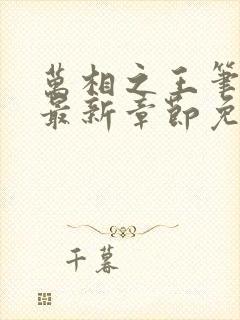 萬相之王筆
最新章節免
千暮